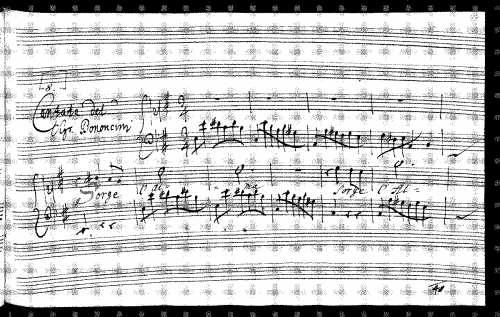 [8.]
Cantata Del
Sigr. Bononcini
Sorge l'al - ba Sorge l'al =